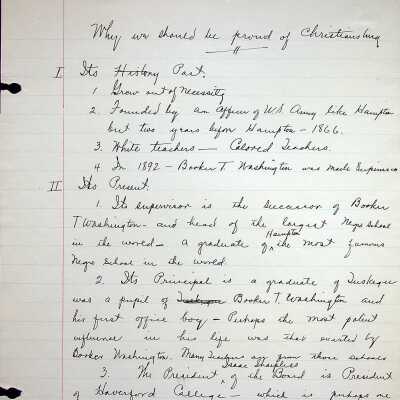 Why we should be proud of Christiansburg
I Its History Past.
1 Grew out of necessity
2. Founded by an Officer of U.S. Army like Hampton
but two years before Hampton - 1866.
3. White teachers — Colored Teachers.
4 In 1892 - Booker T. Washington was made
II Its Present.
1. Its supervisor is the successor of Booker
T Washington - and head of the largest Negro School
in the world - a graduate of Hampton the most famous
Negro School in the world.
2. Its Principal is a graduate of Tuskegee
was a pupil of Tuskegee Booker T. Washington and
his first office boy - Perhaps the most potent
influence in his life was that exerted by
Booker Washington. Many Teachers are from those schools
3. The President Isaac Sharpless of the Board is President
of Haverford College - which is perhaps one